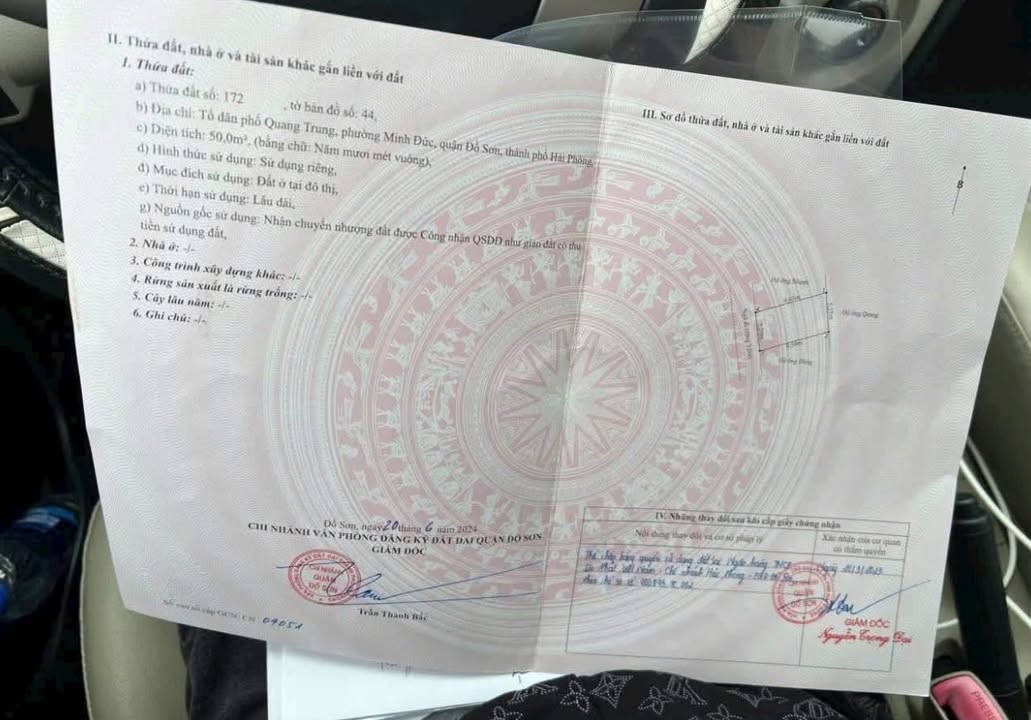 II. Thửa đất, nhà ở và tài sản khác gắn liền với đất
1. Thửa đất:
a) Thửa đất số: 172 , tờ bản đồ số: 44,
b) Địa chỉ: Tổ dân phố Quang Trung, phường Minh Đức, quận Đồ Sơn, thành phố Hải Phòng,
c) Diện tích: 50,0m², (bằng chữ: Năm mươi mét vuông),
d) Hình thức sử dụng: Sử dụng riêng,
đ) Mục đích sử dụng: Đất ở tại đô thị,
e) Thời hạn sử dụng: Lâu dài,
g) Nguồn gốc sử dụng: Nhận chuyển nhượng đất được Công nhận QSDĐ như giao đất có thu
tiền sử dụng đất,
2. Nhà ở: -/-
3. Công trình xây dựng khác: -/-
4. Rừng sản xuất là rừng trồng: -/-
5. Cây lâu năm: -/-
6. Ghi chú: -/-
Đồ Sơn, ngày 20 tháng 6 năm 2024
CHI NHÁNH VĂN PHÒNG ĐĂNG KÝ ĐẤT ĐAI QUẬN ĐỒ SƠN
GIÁM ĐỐC
CHI NHÁNH
QUẬN
ĐỒ SƠN
Trần Thanh Bắc
Số vào sổ cấp GCN: CN 04051
III. Sơ đồ thửa đất, nhà ở và tài sản khác gắn liền với đất
B
Hộ ông
Hộ ông Quang
Hộ ông
IV. Những thay đổi sau khi cấp giấy chứng nhận
Nội dung thay đổi và cơ sở pháp lý
Xác nhận của cơ quan
có thẩm quyền
Thế chấp bằng quyền sử dụng đất tại Ngân hàng TMCP
Việt Nam - Chi nhánh Hải Phòng -
theo hồ sơ số
QUẬN
ĐỒ SƠN
GIÁM ĐỐC
Nguyễn Trọng Đại